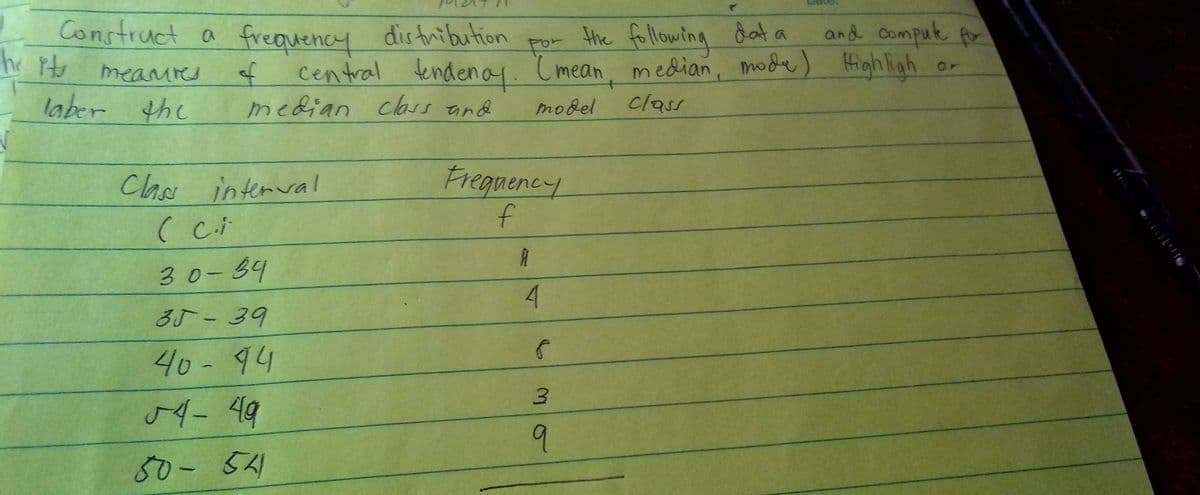 Construct a frequency distribution for the following data and compute for
the its measures of central tendenay. (mean, median, mode) Highligh or
laber the median class and model class
Class interval Frequency
( C.i f
30-34 11
35-39 4
40-44 8
54-49 3
50-54 9